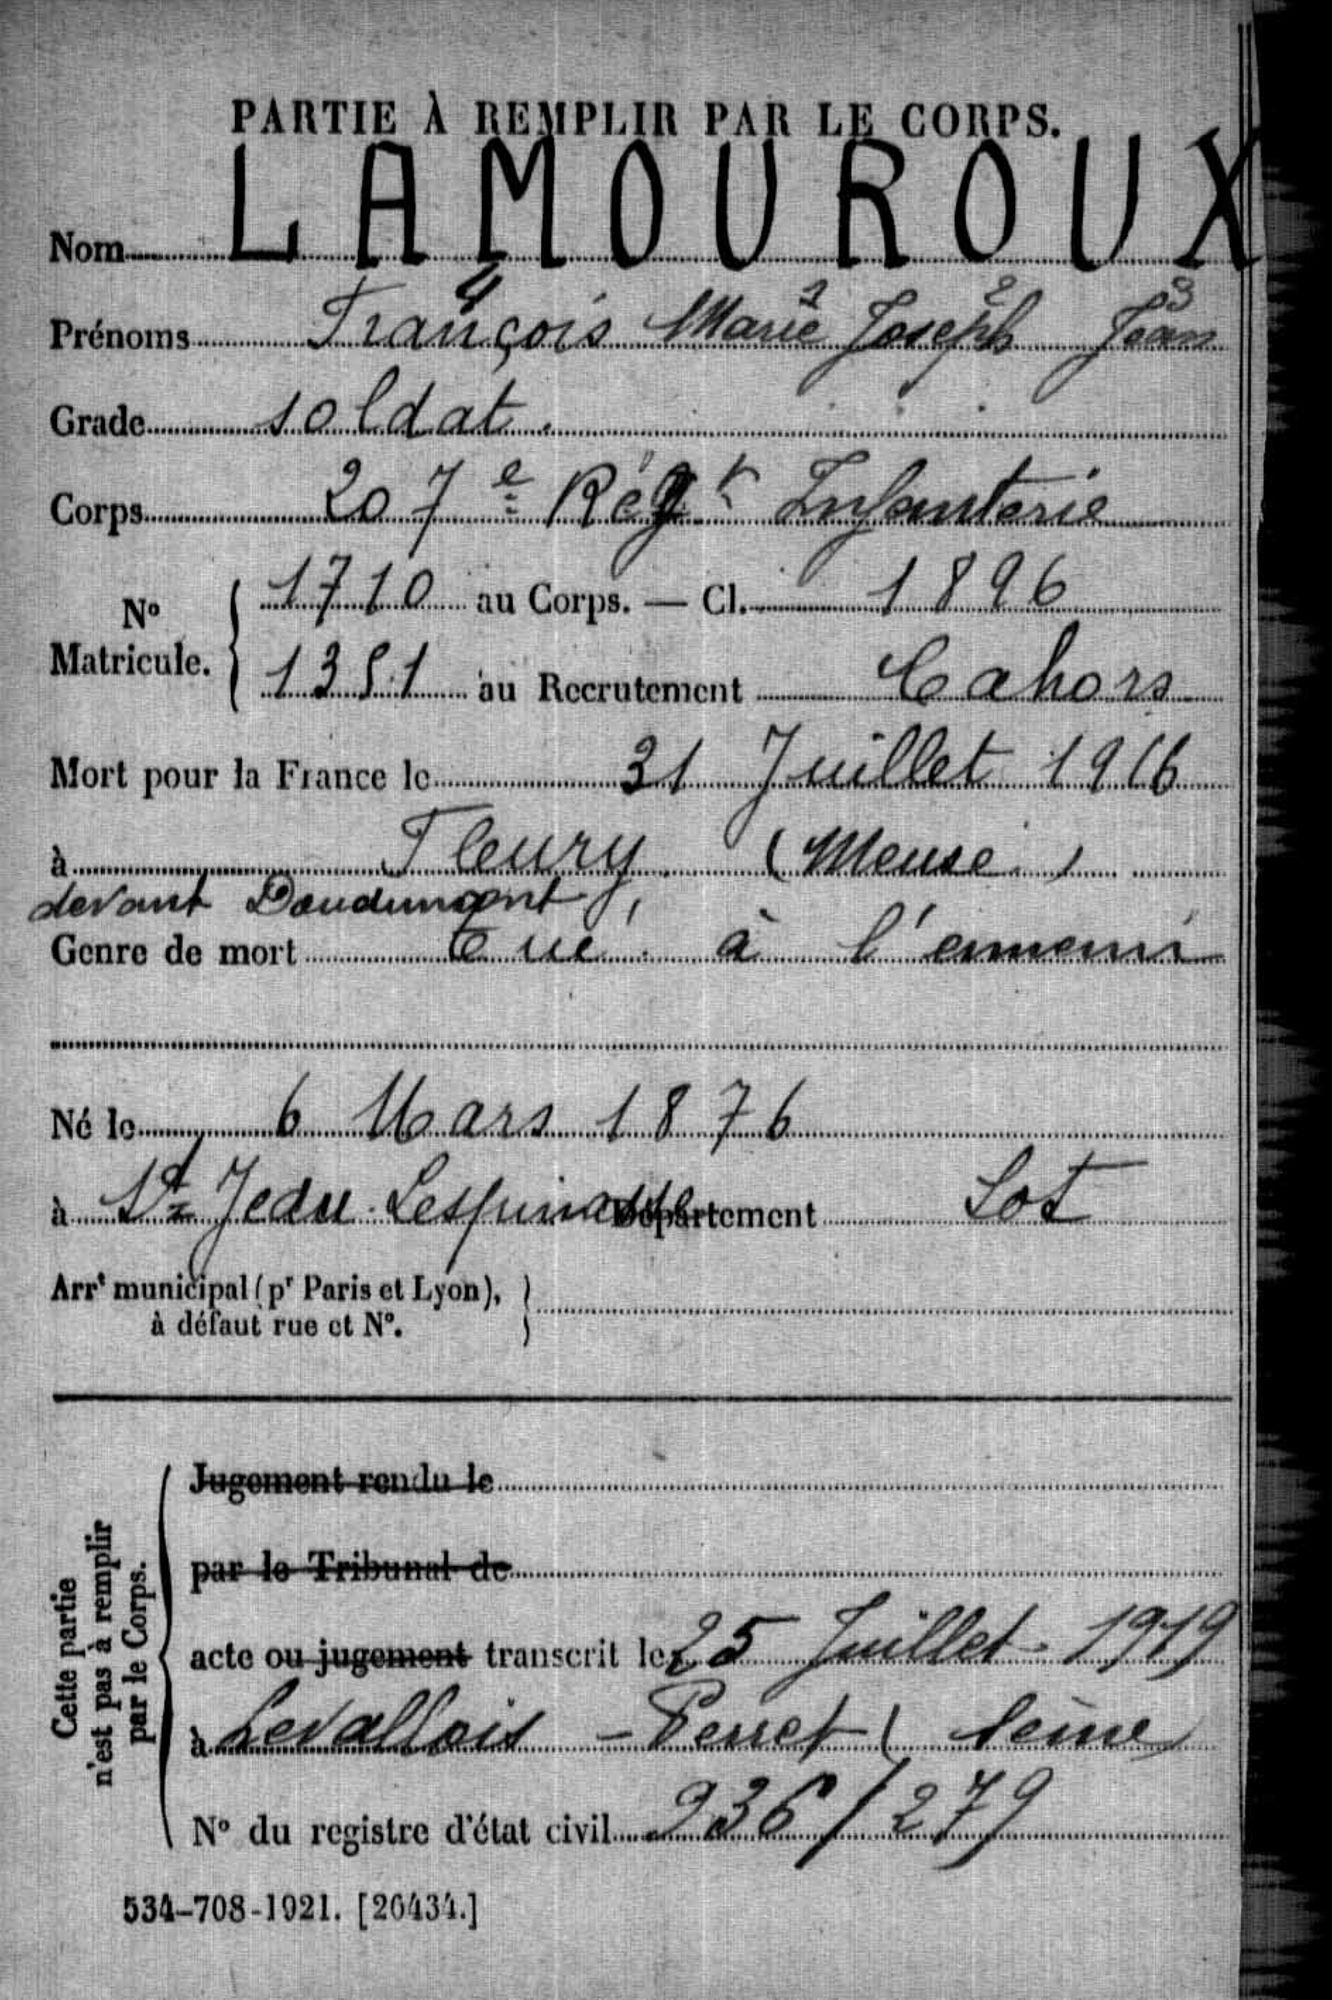 PARTIE À REMPLIR PAR LE CORPS.
Nom LAMOUROUX
4 1 2 3
Prénoms François Marie Joseph Jean
Grade soldat.
Corps 207e Régt Infanterie
No Matricule. { 1710 au Corps. — Cl. 1896
1351 au Recrutement Cahors
Mort pour la France le 31 Juillet 1916
à Fleury (Meuse)
devant
Genre de mort tué à l'ennemi
Né le 6 Mars 1876
à St Jean Lespinasse Département Lot
Arrt municipal (pr Paris et Lyon),
à défaut rue et No.
Cette partie
n'est pas à remplir
par le Corps.
Jugement rendu le
par le Tribunal de
acte ou jugement transcrit le 25 Juillet 1919
à Levallois - Perret (Seine)
No du registre d'état civil 236/279
534-708-1921. [26434.]